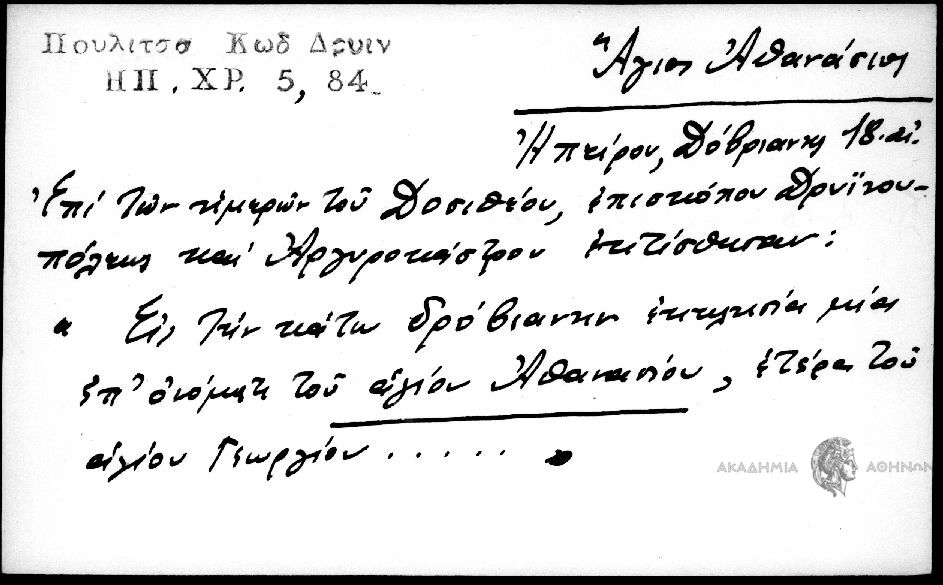 Πουλιτσα Κωδ Δρυιν
ΗΠ. ΧΡ. 5, 84.
Ἅγιος Ἀθανάσιος
Ἠπείρου, Δόβριανης 18. αἰ.
Ἐπί τῶν ἡμερῶν τοῦ Δοσιθέου, ἐπισκόπου Δρυϊνου-
πόλεως καί Ἀργυροκάστρου ἐκτίσθησαν:
" Εἰς τήν κάτω δρόβιανην ἐκκλησία μία
ἐπ' ὀνόματι τοῦ ἁγίου Ἀθανασίου, ἑτέρα τοῦ
ἁγίου Γεωργίου . . . . . . "
ΑΚΑΔΗΜΙΑ ΑΘΗΝΩΝ